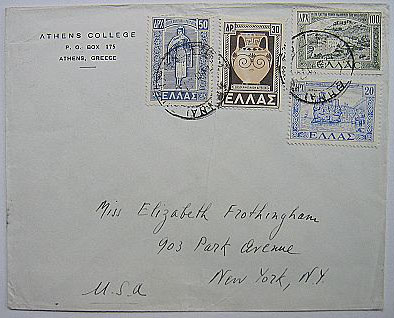 ATHENS COLLEGE
P. O. BOX 175
ATHENS, GREECE
ΔΡΧ 50
ΕΛΛΑΣ
ΔΡ 30
ΕΛΛΑΣ
ΔΡΧ 100
ΕΛΛΑΣ
20
ΕΛΛΑΣ
Miss Elizabeth Frothingham
903 Park Avenue
New York, N.Y.
U.S.A